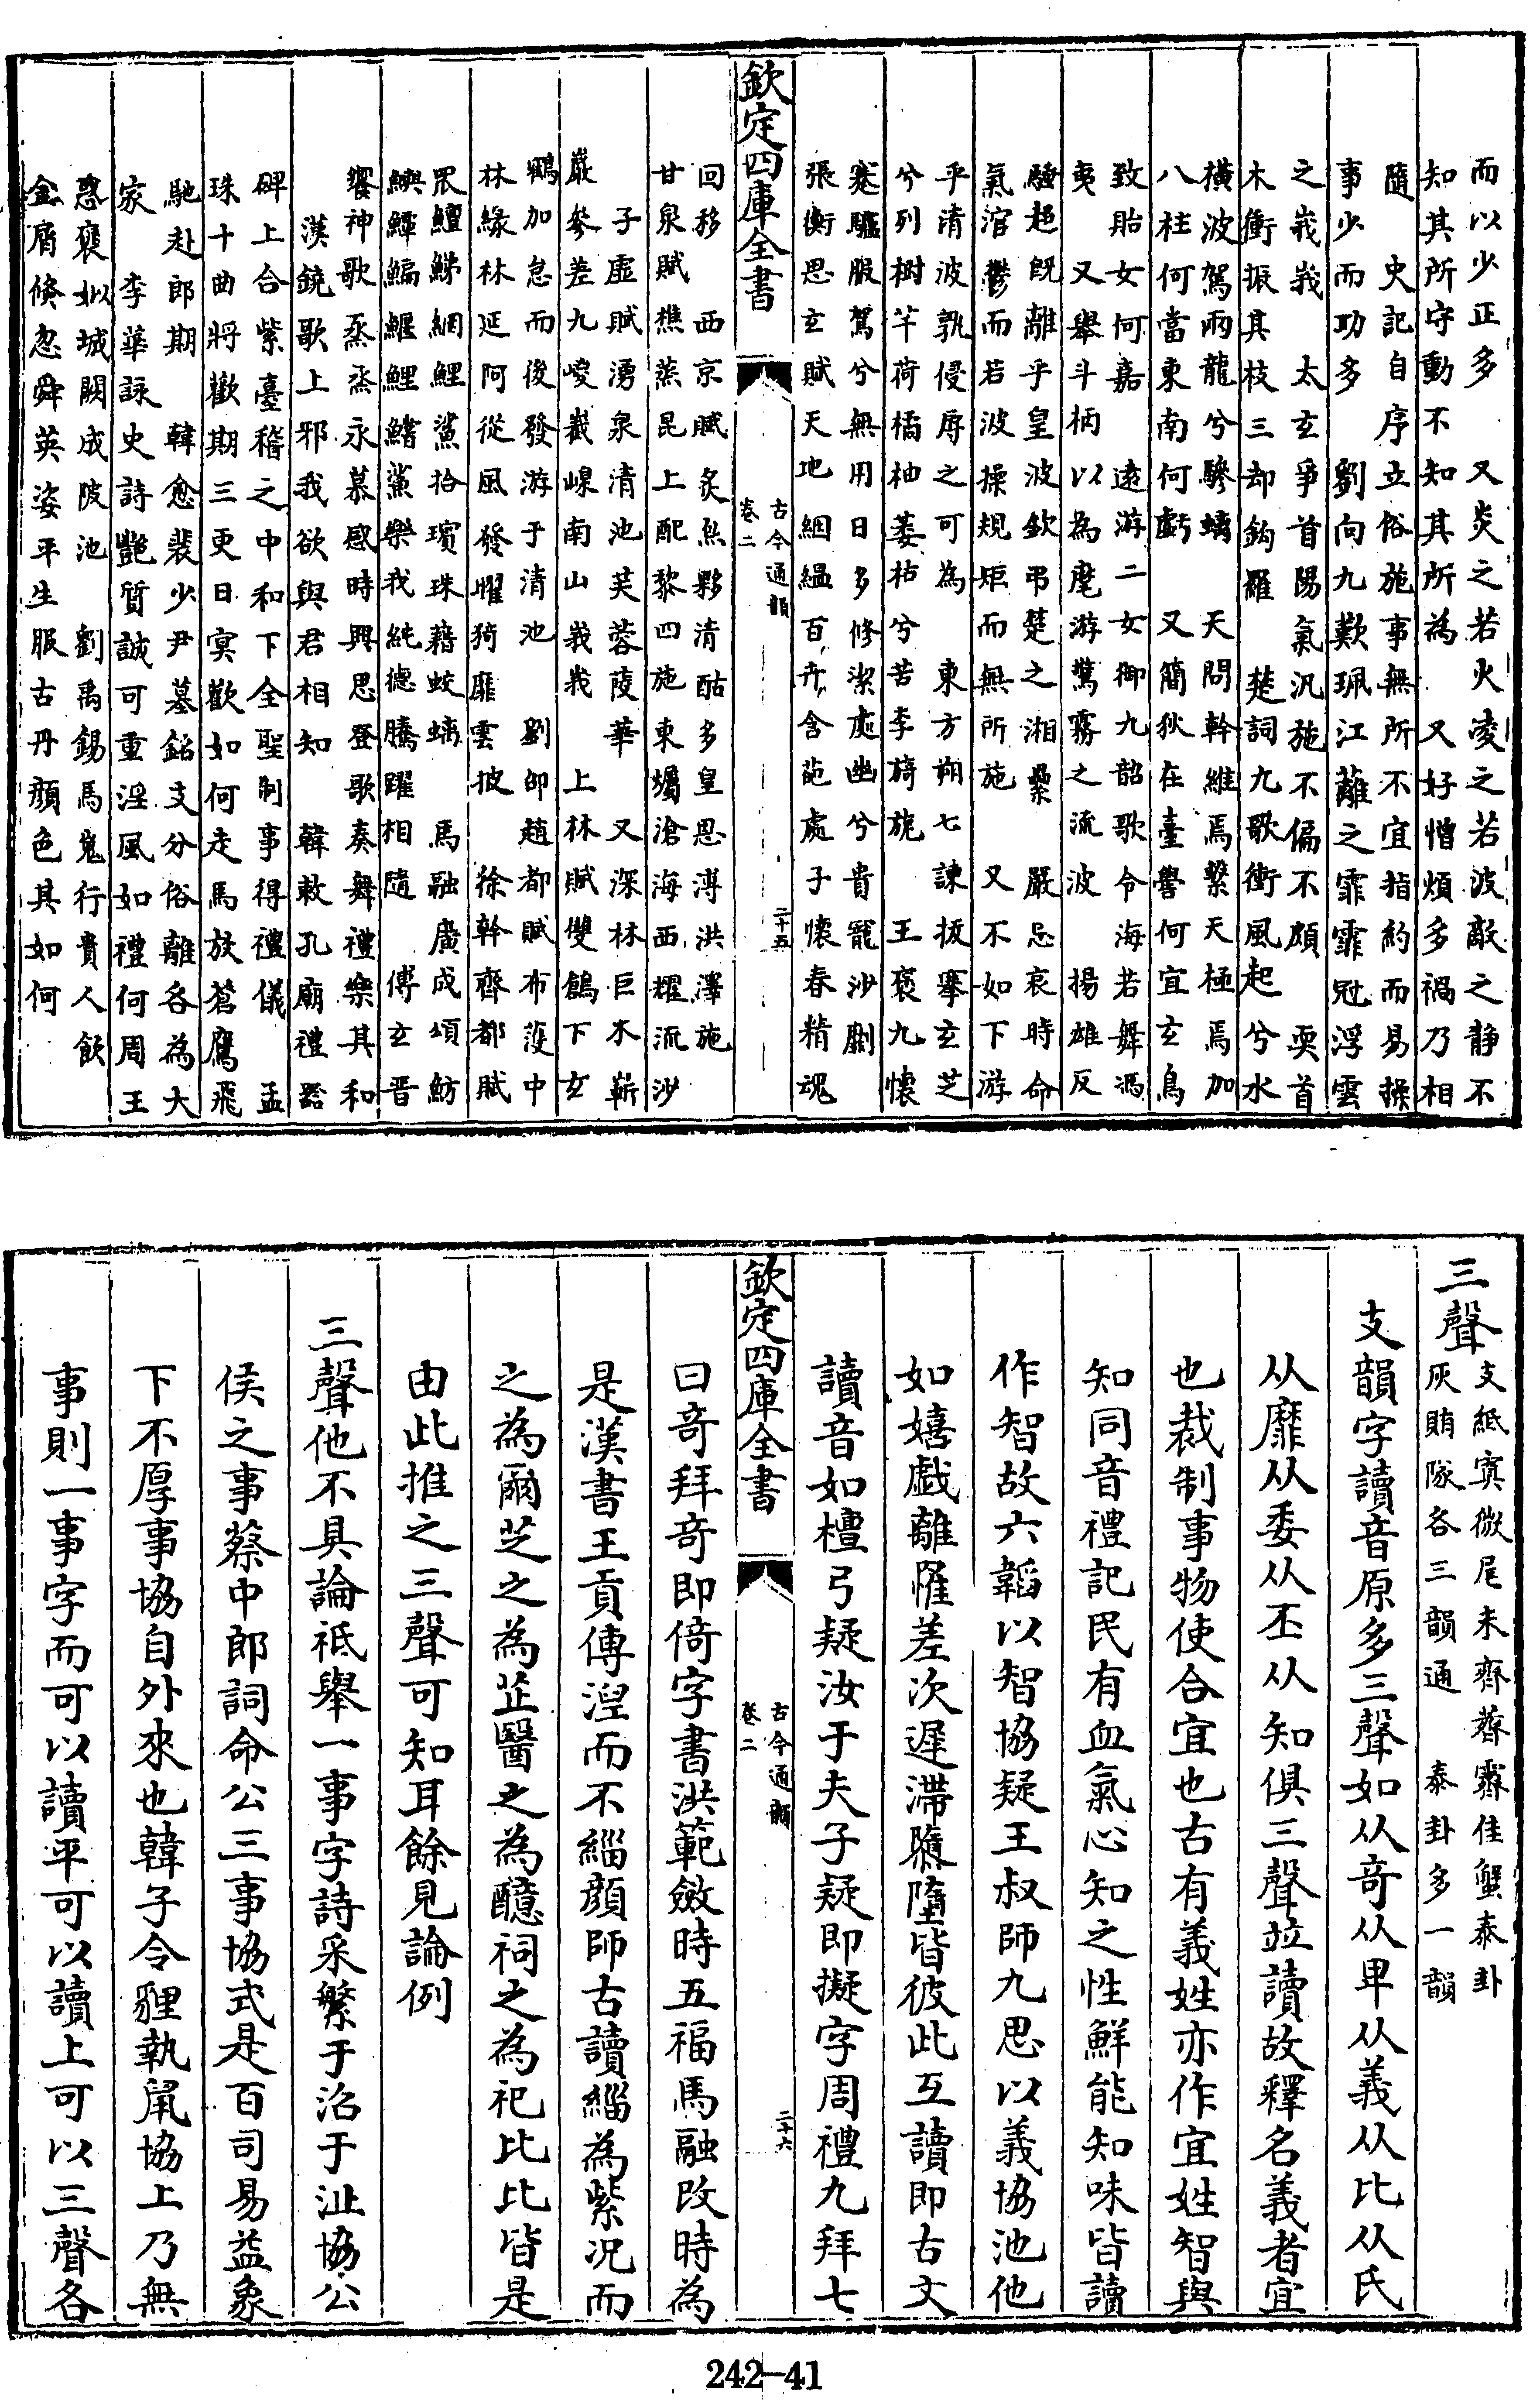 而以少正多　又炎之若火凌之若波敵之静不
知其所守動不知其所為　又好憎煩多禍乃相
隨　史記自序立俗施事無所不宜指約而易操
事少而功多　劉向九歎珮江蘺之霏霏冠浮雲
之峩峩　太玄爭首陽氣汎施不偏不頗　耎首
木衝振其枝三却鈎羅　楚詞九歌衝風起兮水
橫波駕兩龍兮驂螭　天問斡維焉繫天極焉加
八柱何當東南何虧　又簡狄在臺嚳何宜玄鳥
致貽女何嘉　遠游二女御九韶歌令海若舞馮
夷　又舉斗柄以為麾游驚霧之流波　揚雄反
騷超既離乎皇波欽弔楚之湘纍　嚴忌哀時命
氣涫鬱而若波操規矩而無所施　又不如下游
乎清波孰侵辱之可為　東方朔七諫拔搴玄芝
兮列樹芋荷橘柚萎枯兮苦李旖旎　王褒九懷
蹇驢服駕兮無用日多修潔處幽兮貴寵沙劘
張衡思玄賦天地絪縕百卉含葩處子懷春精魂
欽定四庫全書
古今通韻
卷二
二十五
回移　西京賦炙炰夥清酤多皇恩溥洪澤施
甘泉賦樵蒸昆上配黎四施東爥滄海西耀流沙
子虛賦湧泉清池芙蓉蔆華　又深林巨木嶄
巖參差九嵕嶻嶭南山峩峩　上林賦雙鶬下玄
鶴加怠而後發游于清池　劉邵趙都賦布濩中
林緣林延阿從風發燿猗靡雲披　徐幹齊都賦
罛鱣鮷網鯉鯊拾璸珠藉蛟螭　馬融廣成頌魴
鱮鱏鯿鰋鯉鱨鯊樂我純德騰躍相隨　傅玄晋
饗神歌烝烝永慕感時興思登歌奏舞禮樂其和
漢鐃歌上邪我欲與君相知　韓敕孔廟禮器
碑上合紫臺稽之中和下合聖制事得禮儀　孟
珠十曲將歡期三更日冥歡如何走馬放蒼鷹飛
馳赴郎期　韓愈裴少尹墓銘支分俗離各為大
家　李華詠史詩艶質誠可重淫風如禮何周王
惑褒姒城闕成陂池　劉禹錫馬嵬行貴人飲
金屑倐忽舜英姿平生服古丹顔色其如何
三聲
支紙寘微尾未齊薺霽佳蟹泰卦
灰賄隊各三韻通　泰卦多一韻
支韻字讀音原多三聲如从奇从卑从義从比从氏
从靡从委从丕从知俱三聲竝讀故釋名義者宜
也裁制事物使合宜也古有義姓亦作宜姓智與
知同音禮記民有血氣心知之性鮮能知味皆讀
作智故六韜以智協疑王叔師九思以義協池他
如嬉戲離罹差次遲滯隳墮皆彼此互讀即古文
讀音如檀弓疑汝于夫子疑即擬字周禮九拜七
欽定四庫全書
古今通韻
卷二
二十六
曰奇拜奇即倚字書洪範斂時五福馬融改時為
是漢書王貢傳湼而不緇顔師古讀緇為紫况而
之為爾芝之為芷醫之為醷祠之為祀比比皆是
由此推之三聲可知耳餘見論例
三聲他不具論祗舉一事字詩采蘩于沼于沚協公
侯之事蔡中郎詞命公三事協式是百司易益象
下不厚事協自外來也韓子令貍執鼠協上乃無
事則一事字而可以讀平可以讀上可以三聲各
242-41